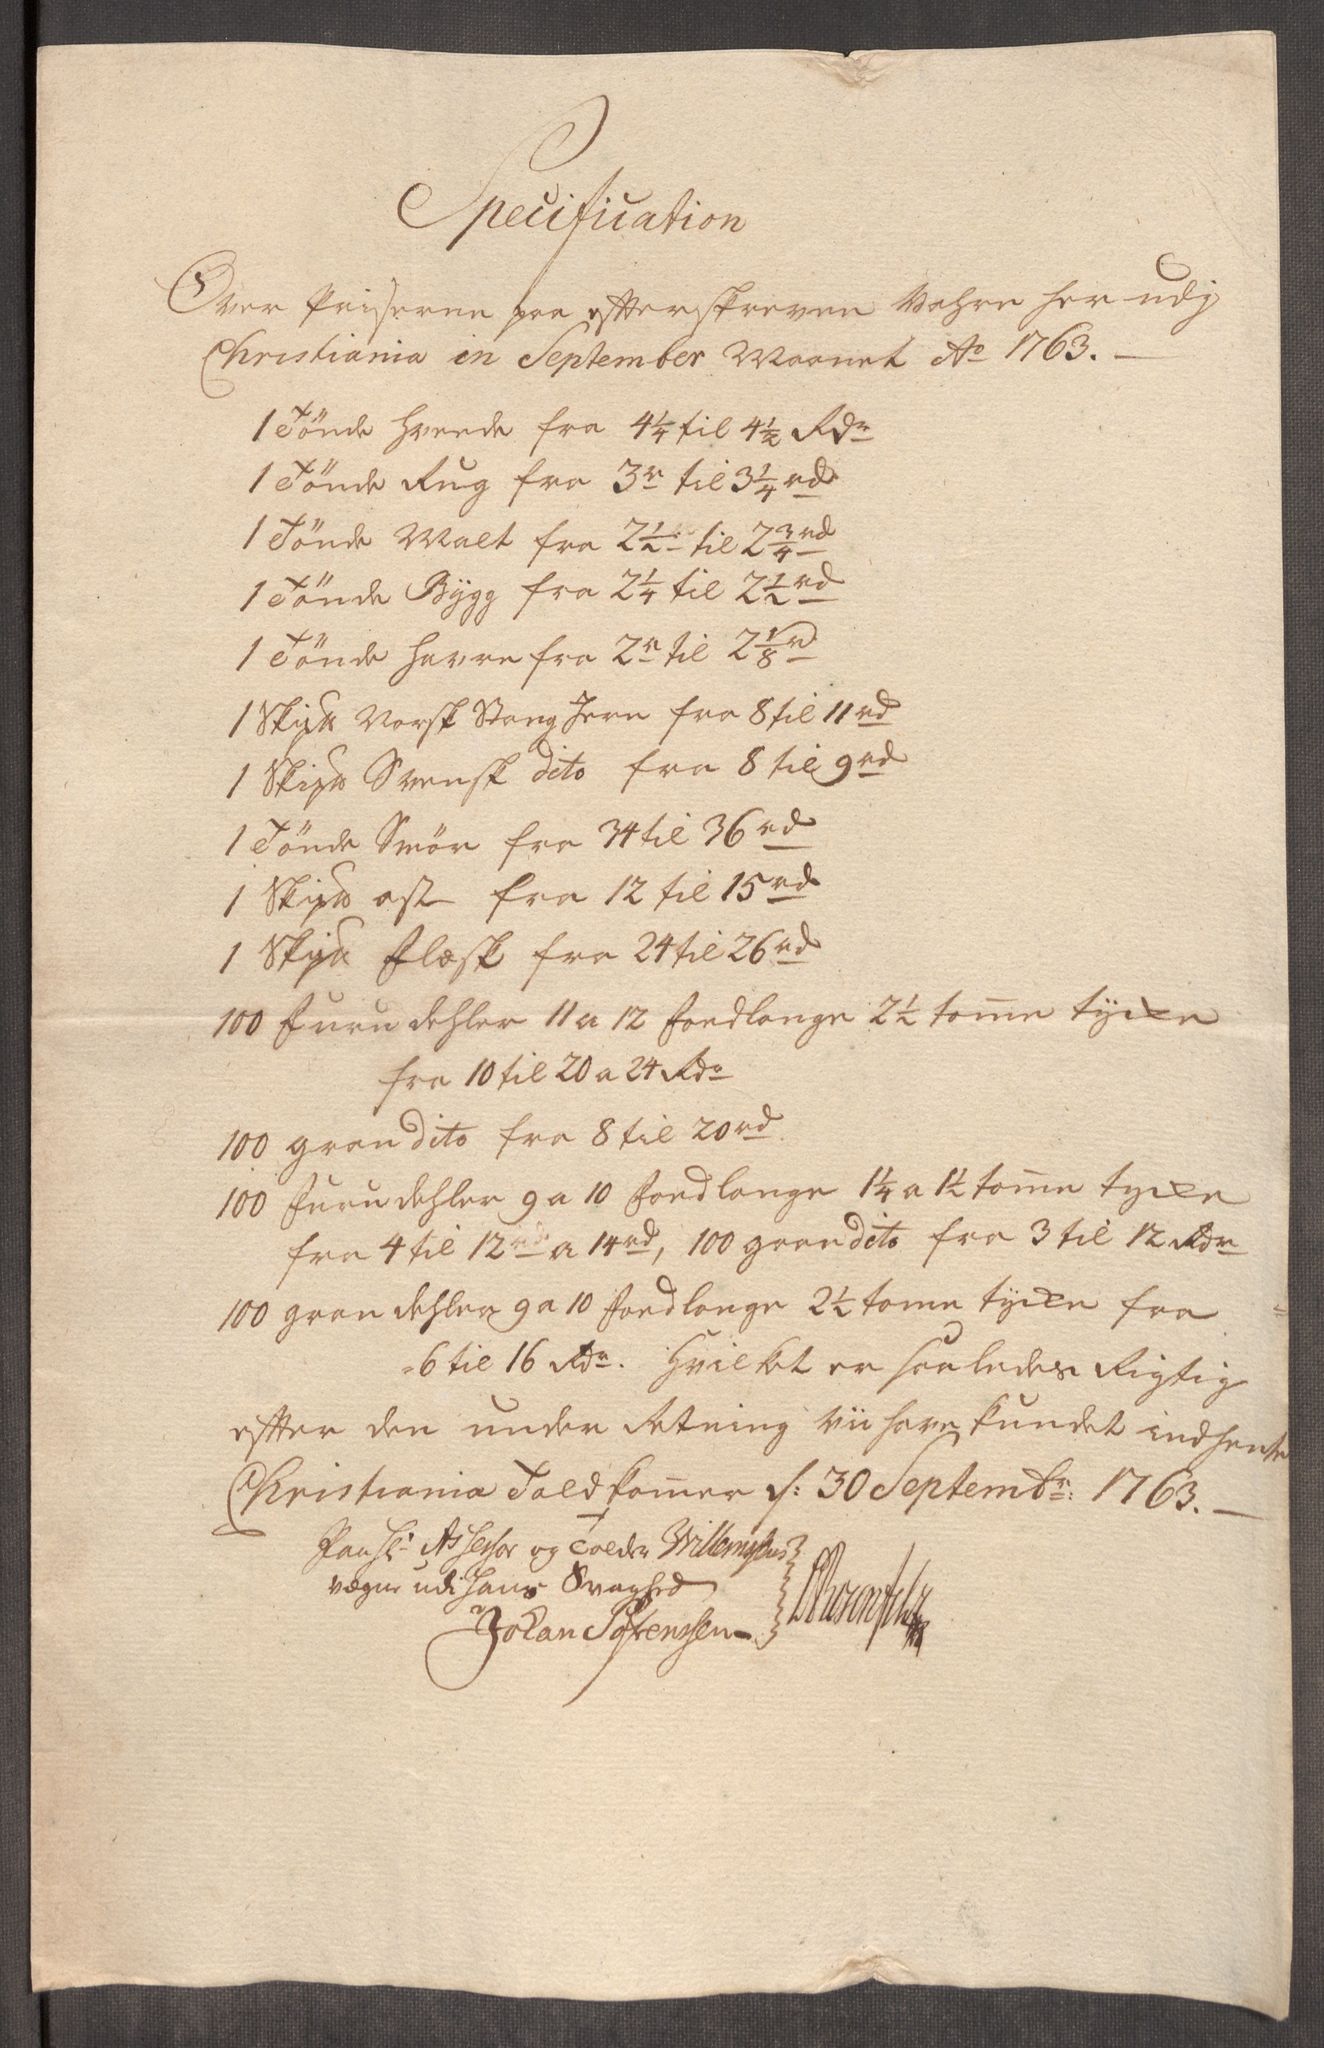 Specification
Over Priserne paa efterskreven Vahre her udj
Christiania in September Maanet Ao 1763. —
1 Tönde Hvede fra 4¼ til 4½ Rdr
1 Tönde Rug fra 3r til 3¼ rd
1 Tönde Malt fra 2½ til 2¾ rd
1 Tönde Bÿgg fra 2¼ til 2½ rd
1 Tönde Havre fra 2r til 2⅛ r
1 Skip℔ Norsk Stang Jern fra 8 til 11 rd
1 Skip℔ Svensk dito fra 8 til 9 rd
1 Tönde Smör fra 34 til 36 rd
1 Skip℔ ost fra 12 til 15 rd
1 Skip℔ Flæsk fra 24 til 26 rd
100 Furu dehler 11 a 12 foedlange 2½ tom̄e tÿcke
fra 10 til 20 a 24 Rdr
100 gran dito fra 8 til 20 rd
100 Furu dehler 9 a 10 foedlange 1¼ a 1½ tom̄e tycke
fra 4 til 12 rd a 14 rd, 100 gran dito fra 3 til 12 Rdr
100 gran dehler 9 a 10 foedlange 2½ tome tÿcke fra
6 til 16 Rdr. Hvilket er saaledes Rigtig
efter den under Retning vii have kundet indhente
Christiania Toldkam̄er d: 30 Septembr: 1763. —
Paa Hr Assessor og Tolder Willemsens
vegne udi Hans Svaghed
Johan Sörenssen